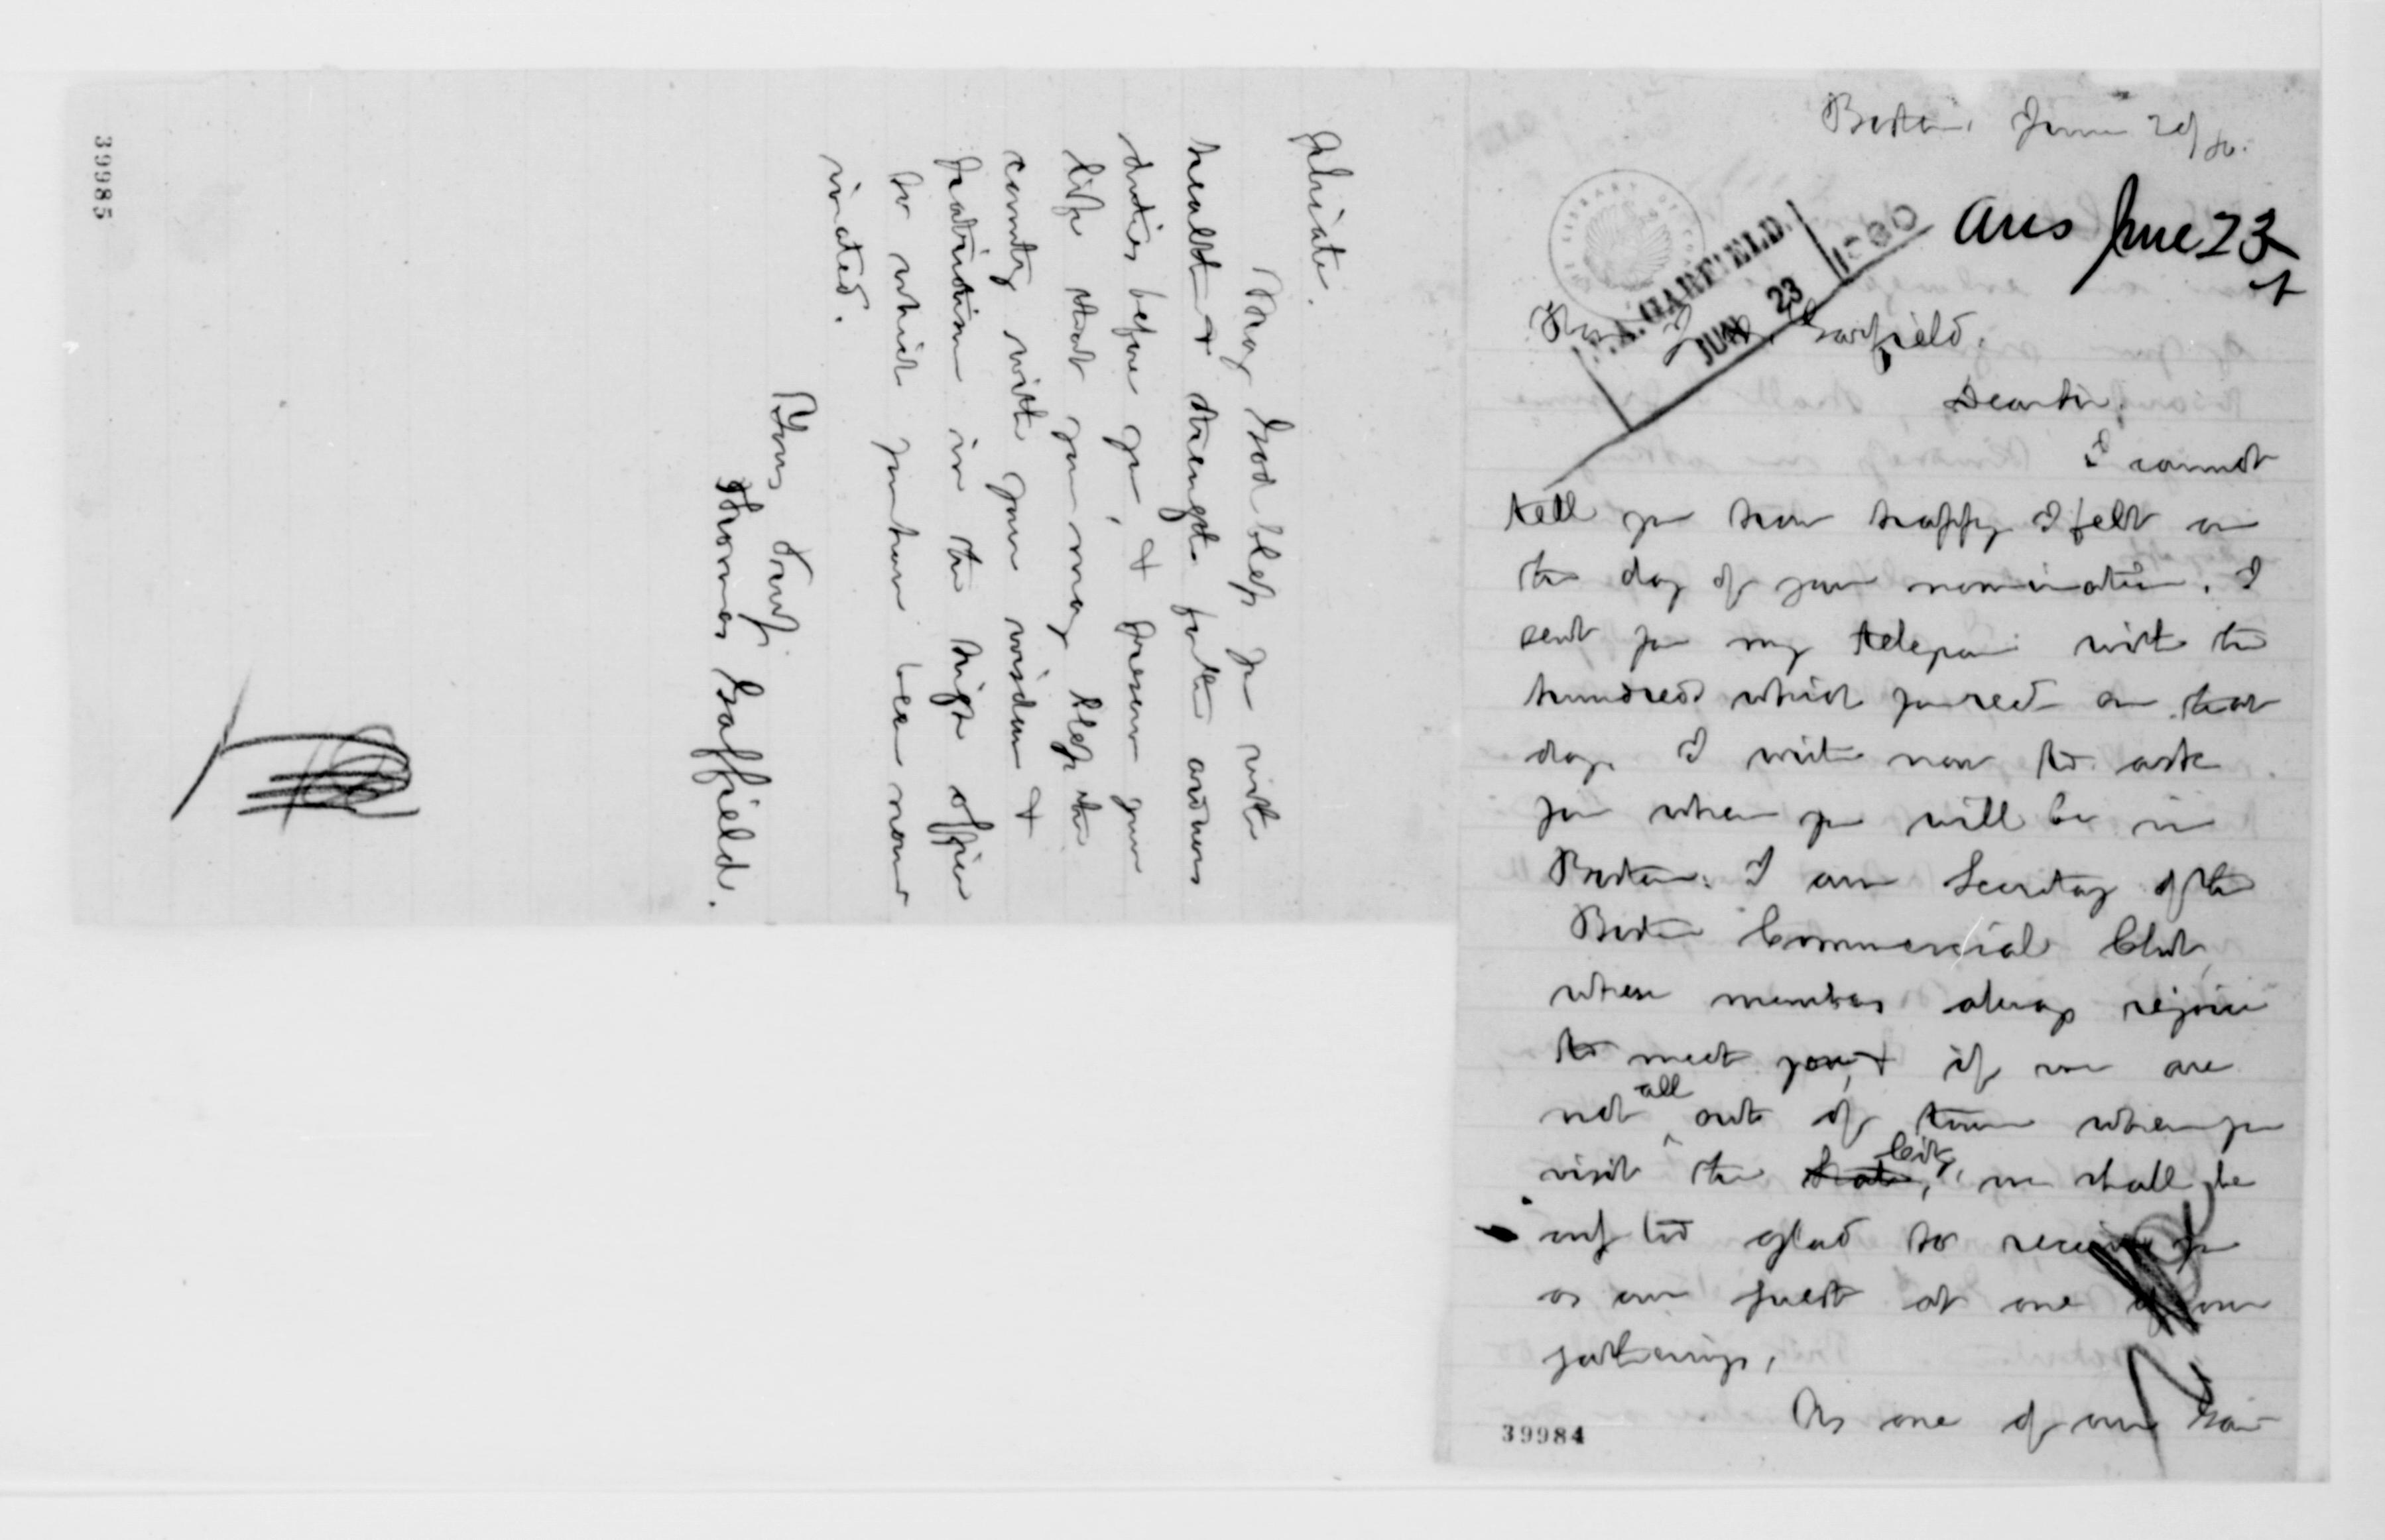 Boston, June 21/80.
Ans June 23
J. A. GARFIELD.
JUN 23 1880
Hon J. A. Garfield.
Dear Sir,
I cannot
tell you how happy I felt on
the day of your nomination. I
sent you my telegram with the
hundreds which you recd on that
day. I write now to ask
you when you will be in
Boston. I am Secretary of the
Boston Commercial Club,
whose members always rejoice
to meet you, & if we are
not all out of town when you
visit the State, City, we shall be
only too glad to receive you
as our guest at one of our
gatherings,
As one of our
39984
phriate.
May God bless you with
health & strength for the arduous
duties before you, & preserve your
life that you may bless the
country with your wisdom &
patriotism in the high office
to which you have been nom
inated.
Yours Truly.
Thomas Gaffield.
39985